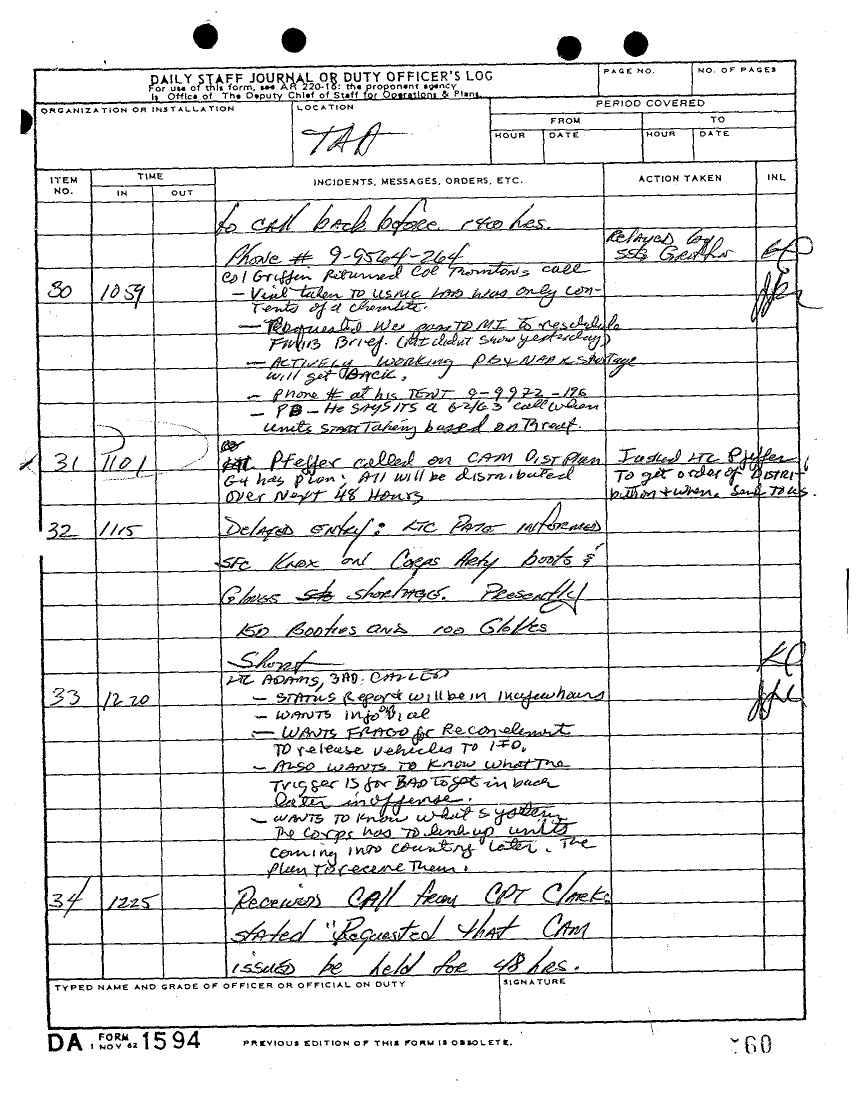 DAILY STAFF JOURNAL OR DUTY OFFICER'S LOG
For use of this form, see AR 220-15: the proponent agency
is Office of The Deputy Chief of Staff for Operations & Plans.
PAGE NO.
NO. OF PAGES
ORGANIZATION OR INSTALLATION
LOCATION
TAA
PERIOD COVERED
FROM
TO
HOUR
DATE
HOUR
DATE
ITEM NO.
TIME
IN
OUT
INCIDENTS, MESSAGES, ORDERS, ETC.
ACTION TAKEN
INL
to CALL back before 1400 hrs.
Phone # 9-9564-264
Relayed by
SSG
30 1059 Col Griffin Returned Col Thornton's call
- Vial taken to USMC was only con-
tents of a chemlite.
- Requested we pass to MI to reschedule
Brief. (MI didnt show yesterday)
- ACTIVELY WORKING PB & NAPP shortage
will get BACK.
- Phone # at his TENT 9-9972-176
- PB - He SAYS ITS a G2/G3 call when
units START Taking based on Threat.
31 1101 LTC Pfeffer called on CAM Dist Plan
G4 has plan; All will be distributed
over Next 48 Hours
I asked LTC Pfeffer
To get order of DISTRI-
bution & when. Send TO us.
32 1115 Delayed Entry: LTC informed
SFC Knox on Corps Arty boots &
Gloves shortage. Presently
150 Booties and 100 Gloves
Short
33 1220 LTC ADAMS, 3AD. CALLED
- STATUS Report will be in in a few hours
- WANTS info on Vial
- WANTS FRAGO for Recon element
TO release vehicles TO 1ID.
- ALSO WANTS TO KNOW what The
Trigger IS for 3AD To get in back
later in offense.
- WANTS TO KNOW what system
The Corps has To link up units
coming into country later. The
plan To receive Them.
34 1225 Received CALL from CPT Clark:
stated "Requested that CAM
issued be held for 48 hrs.
TYPED NAME AND GRADE OF OFFICER OR OFFICIAL ON DUTY
SIGNATURE
DA FORM 1 NOV 62 1594
PREVIOUS EDITION OF THIS FORM IS OBSOLETE.
60